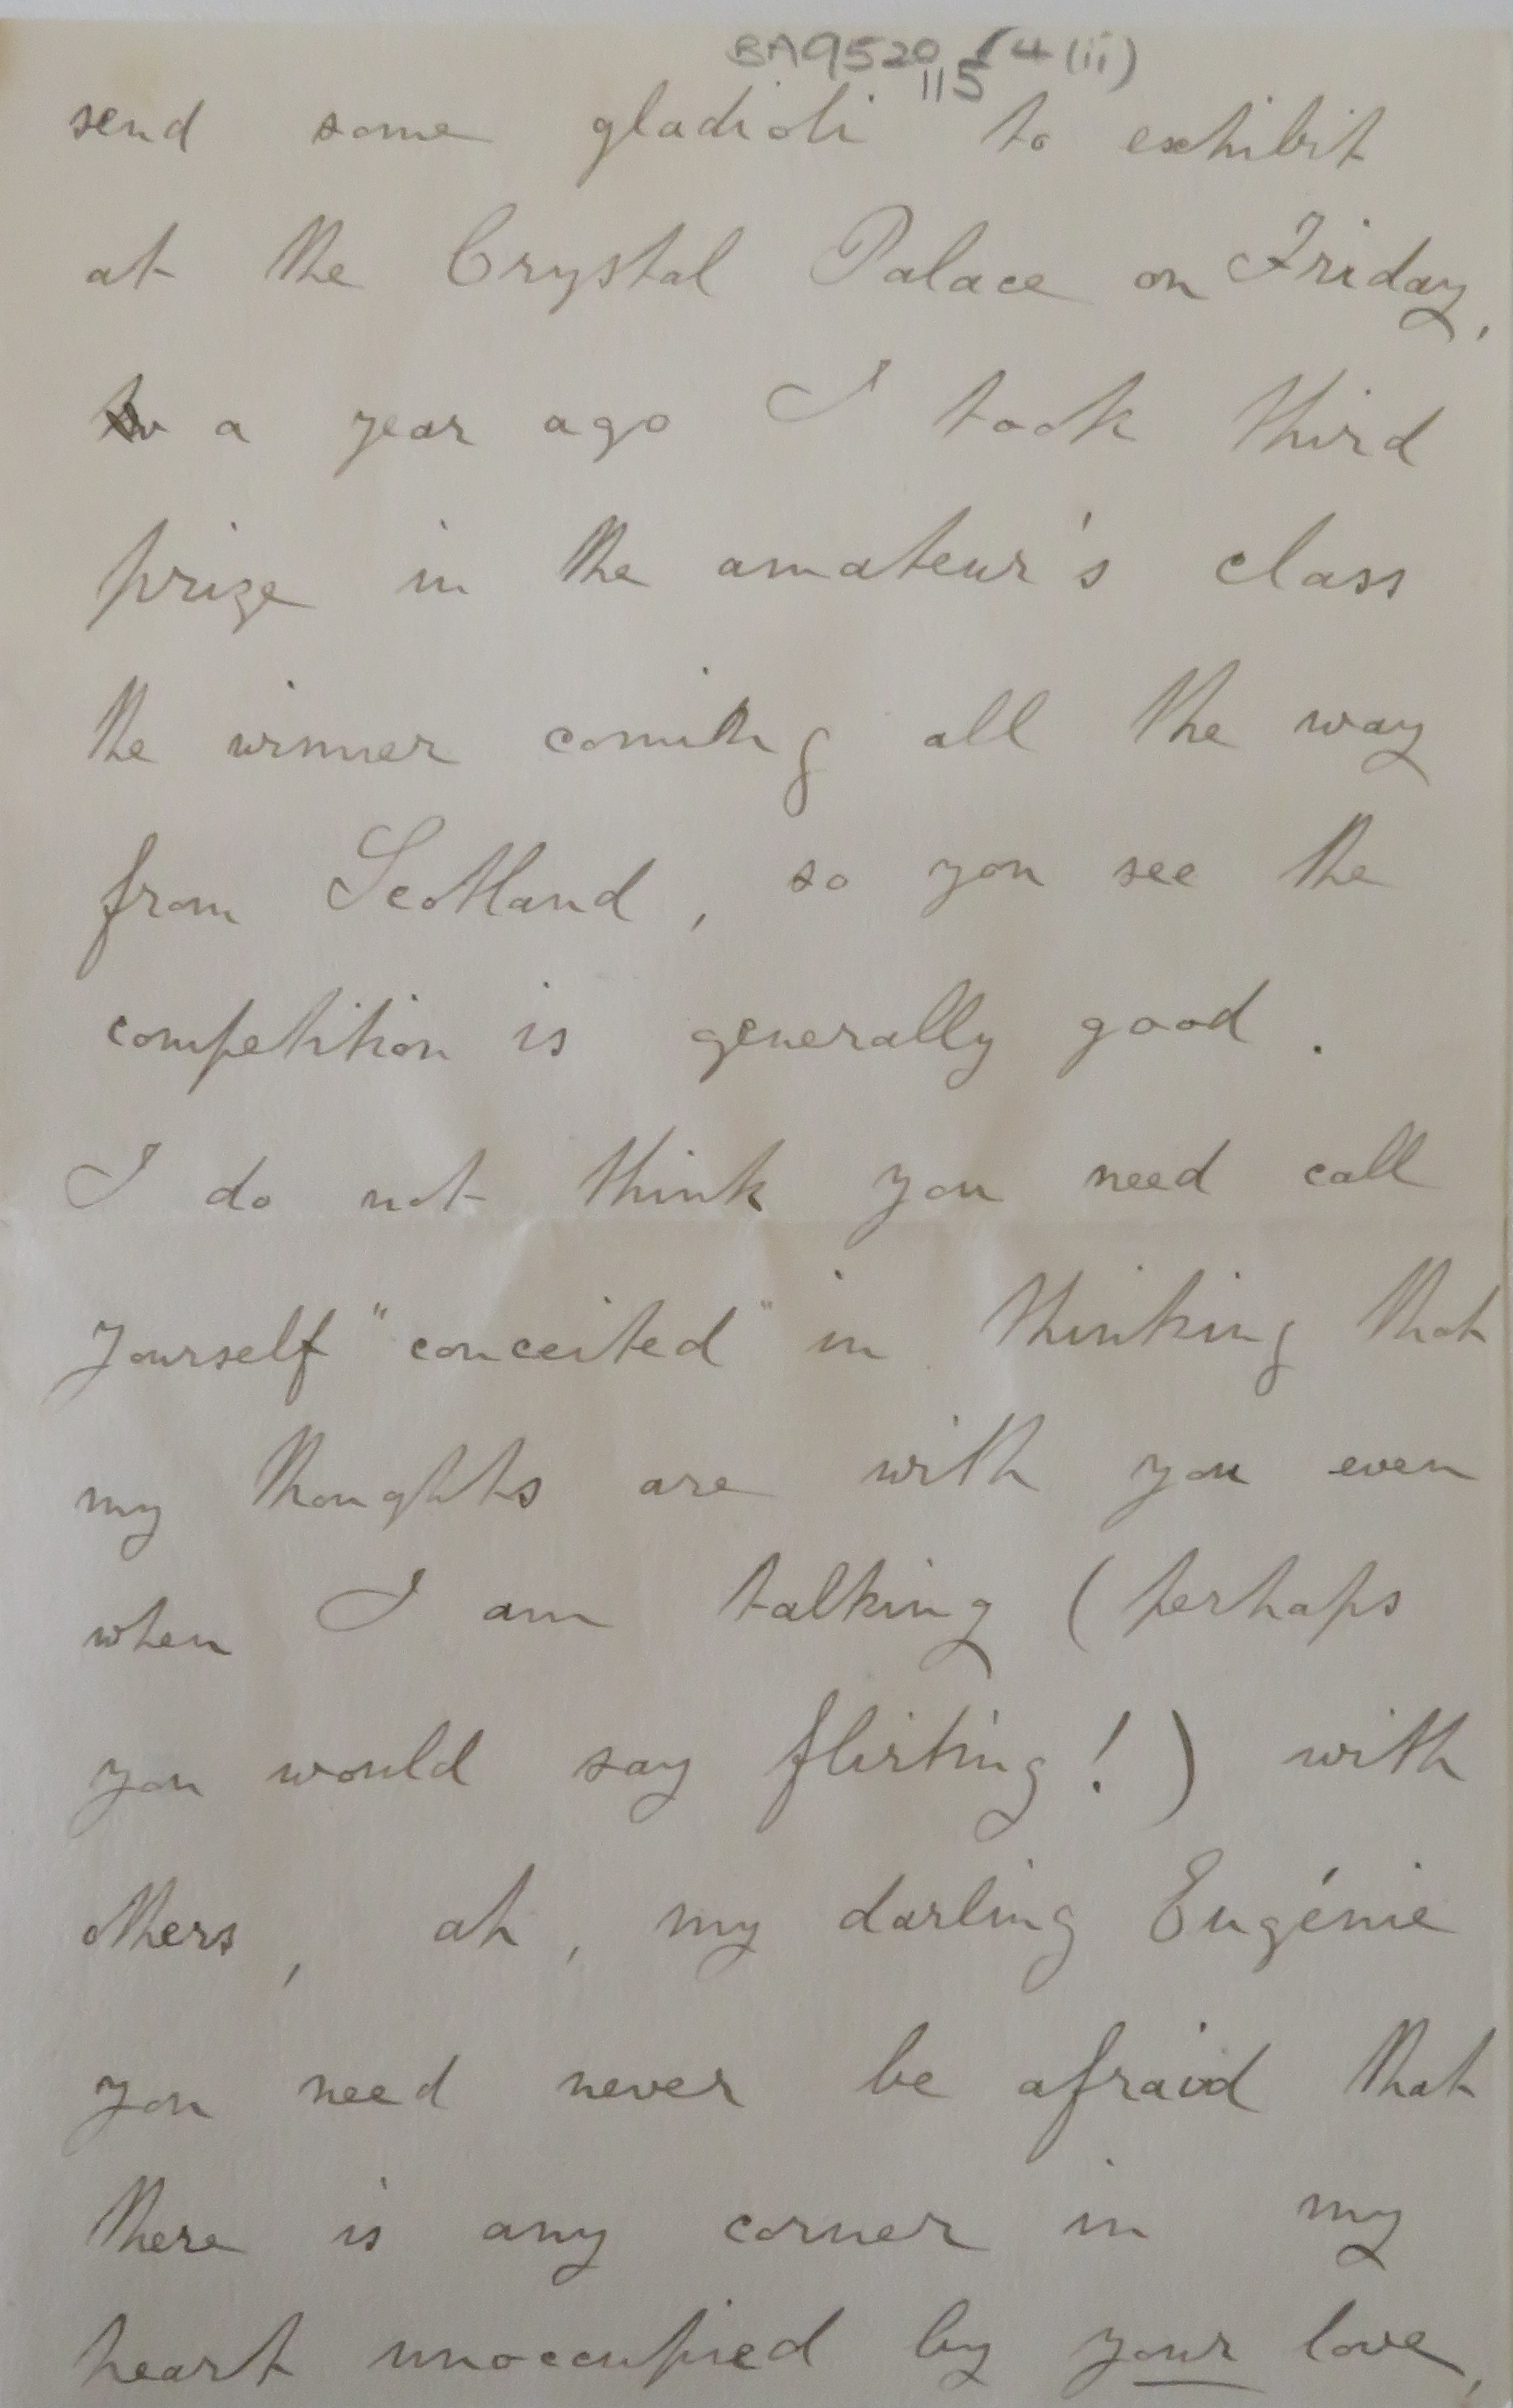 BA9520 14(ii)
115
send some gladioli to exhibit
at the Crystal Palace on Friday,
a year ago I took third
prize in the amateur's class
the winner coming all the way
from Scotland, so you see the
competition is generally good.
I do not think you need call
yourself "conceited" in thinking that
my thoughts are with you even
when I am talking (perhaps
you would say flirting!) with
others, ah, my darling Eugénie
you need never be afraid that
there is any corner in my
heart unoccupied by your love,